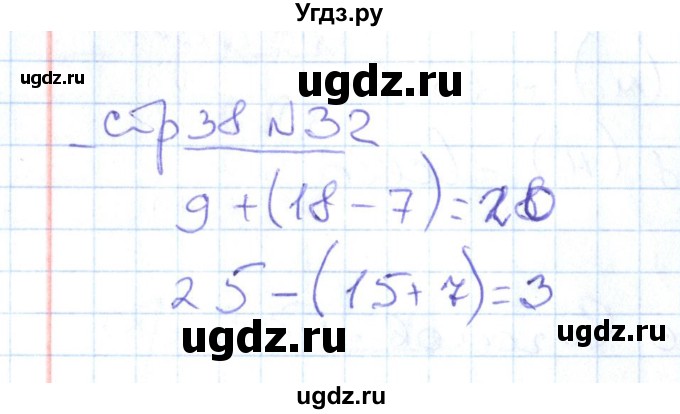 Угдз.ру
ugdz.ru
ugdz.ru
ugdz.ru
стр 38 №32
9+(18-7)=20
ugdz.ru
25-(15+7)=3
ugdz.ru
ugdz.ru
ugdz.ru